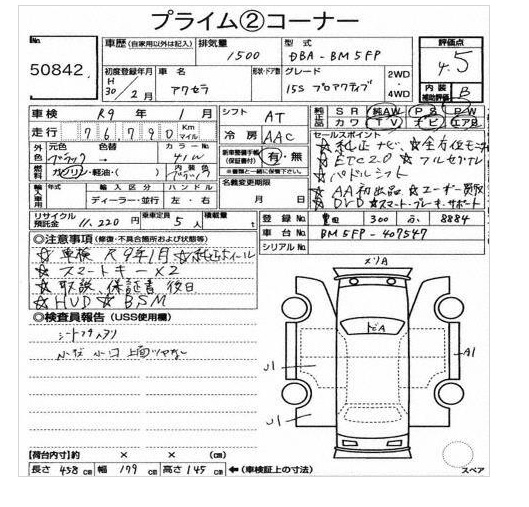 プライム②コーナー
No.
50842
車歴(自家用以外は記入)
排気量 1500
型式 DBA-BM5FP
評価点 4.5
初度登録年月 H30/2月
車名 アクセラ
形状・ドア数
グレード 15S プロアクティブ
2WD・4WD
内装補助評価 B
車検 R9年 1月
シフト AT
純正品 SR 純AW PS PW
カワ TV ナビ エアB
走行 76,790 Km マイル
冷房 AAC
セールスポイント
☆純正ナビ ☆全方位モニター
☆ETC2.0 ☆フルセグTV
☆パドルシフト
☆AA初出品 ☆ユーザー買取
☆DVD ☆スマートブレーキサポート
外色 元色 ブラック 色替 カラーNo. 41W
新車整備手帳(保証書付) 有・無
※書類と一緒に保管して下さい。
燃料 ガソリン・軽油・( ) 内装色 ブラック
名義変更期限 月 日
輸入車用 年式 輸入区分 ハンドル
ディーラー・並行 左・右
リサイクル預託金 11,220円 乗車定員 5人 積載量 t
登録No. 豊田 300 8884
車台No. BM5FP-407547
シリアルNo.
◎注意事項(修復・不具合箇所および状態)
☆車検 R9年1月 ☆純正ホイール
☆スマートキー×2
☆取説、保証書 後日
☆HUD ☆BSM
◎検査員報告(USS使用欄)
シート
小キズ 小凹
メソA
A1
U1
U1
スペア
【荷台内寸】約 × × (cm)
長さ 458cm 幅 179cm 高さ 145cm ←(車検証上の寸法)